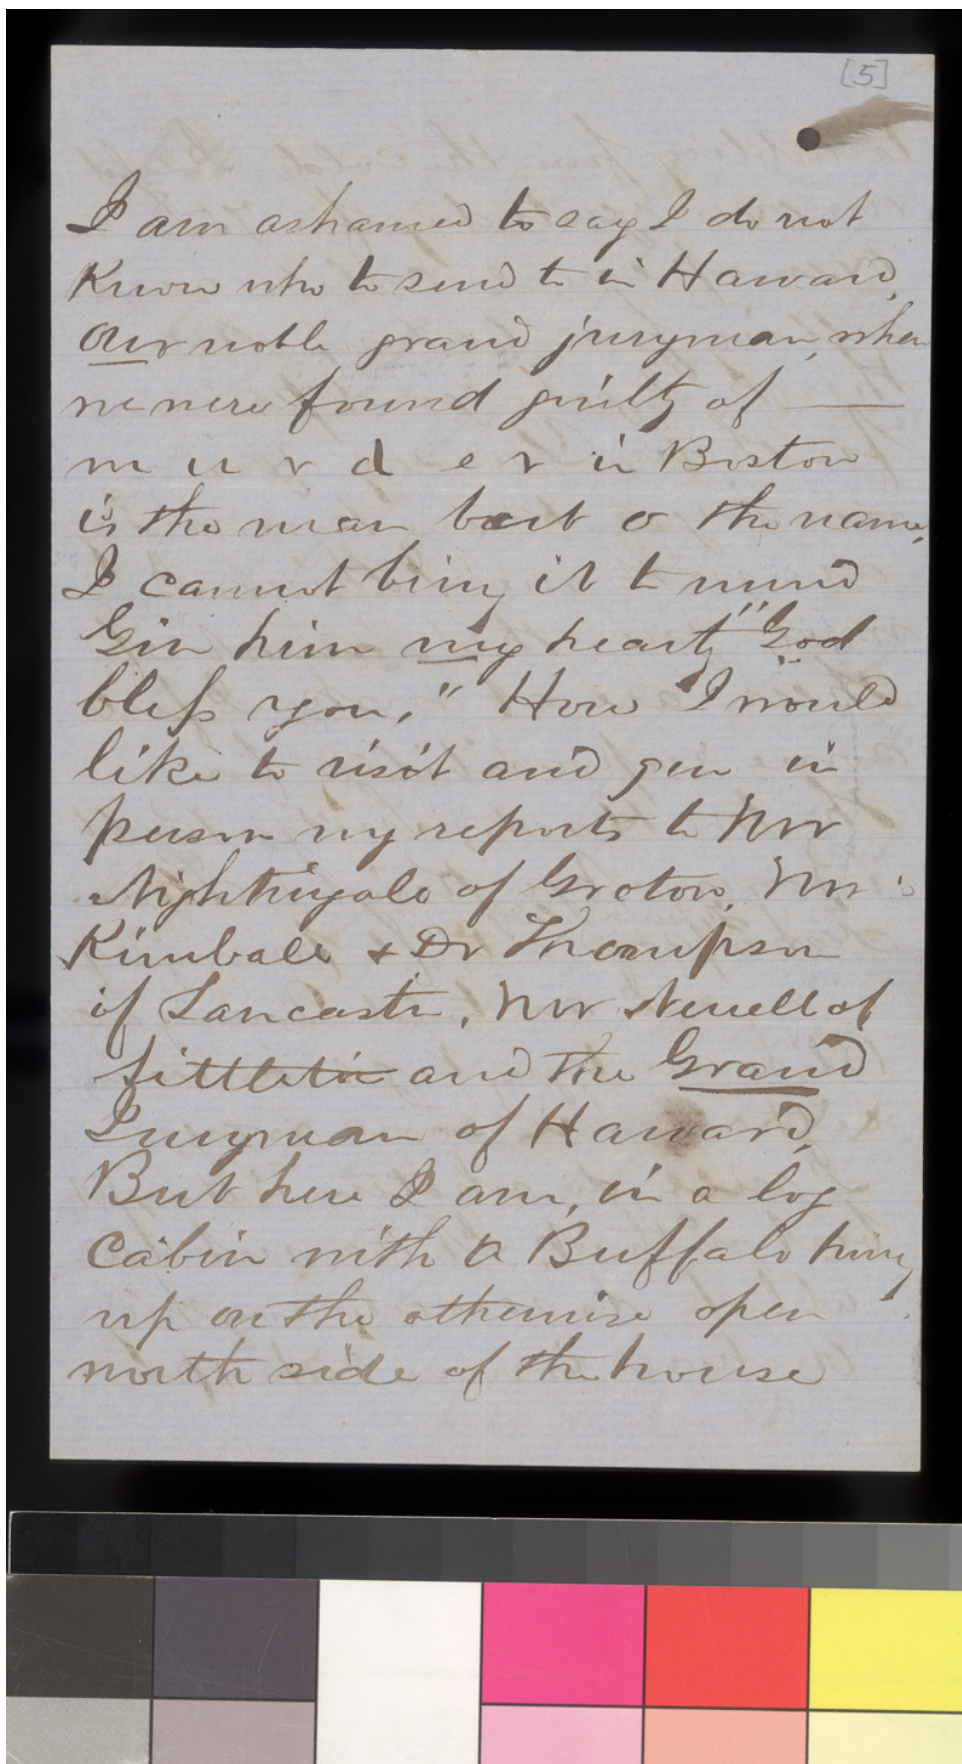 [5]
I am ashamed to say I do not
Know who to send to in Harvard,
our noble grand juryman, when
we were found guilty of ——
m u r d e r in Boston
is the man but o the name,
I cannot bring it to mind
Give him my hearty "God
bless you." How I would
like to visit and give in
person my reports to Mr
Nightingale of Groton, Mr
Kimball & Dr Thompson
of Lancaster, Mr Newell of
Littleton and the Grand
Juryman of Harvard,
But here I am, in a log
Cabin with a Buffalo hung
up on the otherwise open
north side of the house